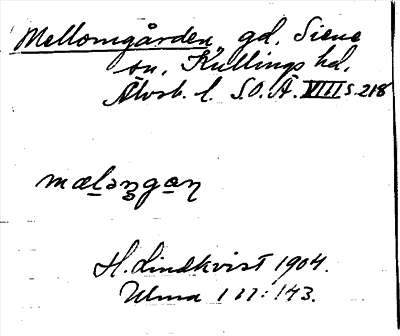 Mellomgården, gd, Siene
sn, Kullings hd,
Älvsb. l. S.O.Ä. VIII s. 218
mæləŋgan
H. Lindkvist 1904.
Ulma 111:143.